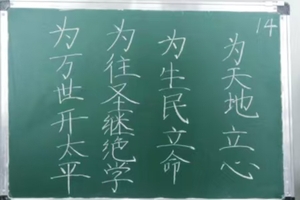 14
为天地立心
为生民立命
为往圣继绝学
为万世开太平